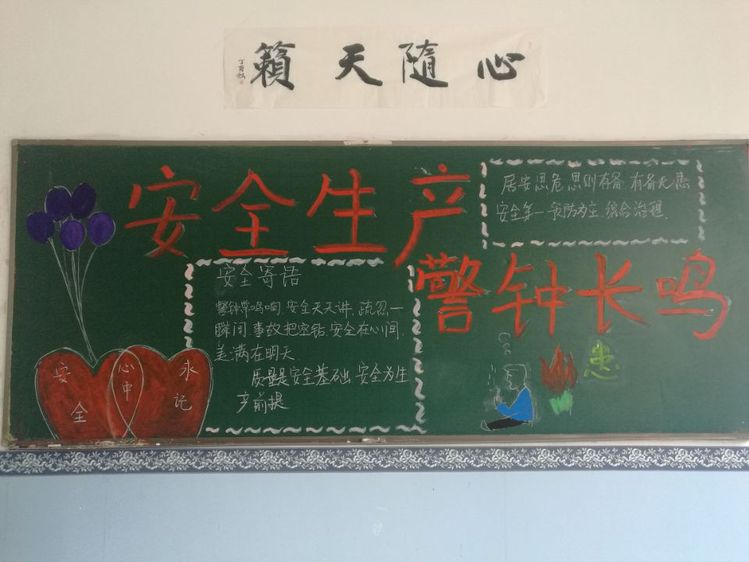 心隨天籟
安全生产
警钟长鸣
居安思危 思则有备 有备无患
安全第一 预防为主 综合治理.
安全寄语
警钟常鸣响,安全天天讲,疏忽一
瞬间,事故把空钻,安全在心间,
美满在明天.
质量是安全基础,安全为生
产前提
安全
心中
永记
患